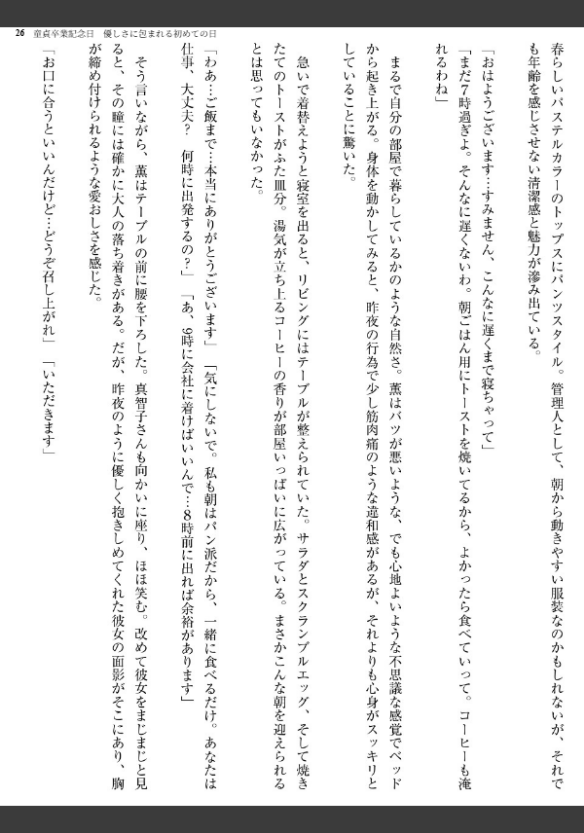 26 童貞卒業記念日 優しさに包まれる初めての日
春らしいパステルカラーのトップスにパンツスタイル。管理人として、朝から動きやすい服装なのかもしれないが、それで
も年齢を感じさせない清潔感と魅力が滲み出ている。
「おはようございます…すみません、こんなに遅くまで寝ちゃって」
「まだ7時過ぎよ。そんなに遅くないわ。朝ごはん用にトーストを焼いてるから、よかったら食べていって。コーヒーも淹
れるわね」
まるで自分の部屋で暮らしているかのような自然さ。薫はバツが悪いような、でも心地よいような不思議な感覚でベッド
から起き上がる。身体を動かしてみると、昨夜の行為で少し筋肉痛のような違和感があるが、それよりも心身がスッキリと
していることに驚いた。
急いで着替えようと寝室を出ると、リビングにはテーブルが整えられていた。サラダとスクランブルエッグ、そして焼き
たてのトーストがふた皿分。湯気が立ち上るコーヒーの香りが部屋いっぱいに広がっている。まさかこんな朝を迎えられる
とは思ってもいなかった。
「わあ…ご飯まで…本当にありがとうございます」「気にしないで。私も朝はパン派だから、一緒に食べるだけ。あなたは
仕事、大丈夫? 何時に出発するの?」「あ、9時に会社に着けばいいんで…8時前に出れば余裕があります」
そう言いながら、薫はテーブルの前に腰を下ろした。真智子さんも向かいに座り、ほほ笑む。改めて彼女をまじまじと見
ると、その瞳には確かに大人の落ち着きがある。だが、昨夜のように優しく抱きしめてくれた彼女の面影がそこにあり、胸
が締め付けられるような愛おしさを感じた。
「お口に合うといいんだけど…どうぞ召し上がれ」「いただきます」